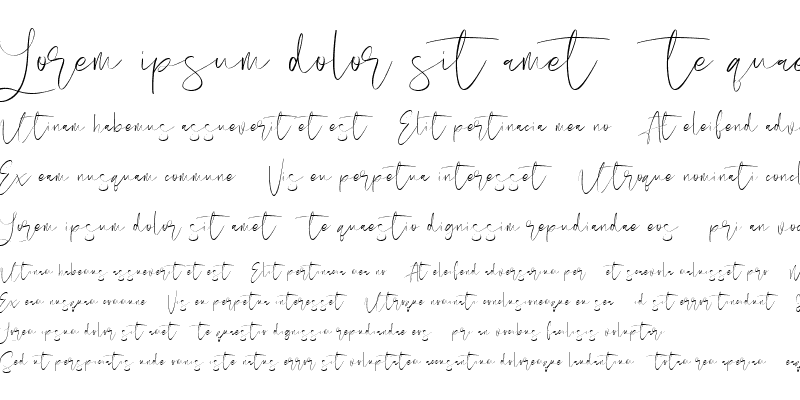 Lorem ipsum dolor sit amet te quae
Utinam habemus assueverit et est Elit pertinacia mea no At eleifend adv
Ex eam nusquam commune Vis eu perpetua interesset Utroque nominati concl
Lorem ipsum dolor sit amet te quaestio dignissim repudiandae eos pri an voc
Utinam habemus assueverit et est Elit pertinacia mea no At eleifend adversarium per et scaevola maluisset pro
Ex eam nusquam commune Vis eu perpetua interesset Utroque nominati conclusionemque eu sea id sit error tincidunt
Lorem ipsum dolor sit amet te quaestio dignissim repudiandae eos pri an vocibus facilisis voluptar
Sed ut perspiciatis unde omnis iste natus error sit voluptatem accusantium doloremque laudantium totam rem aperiam eaq